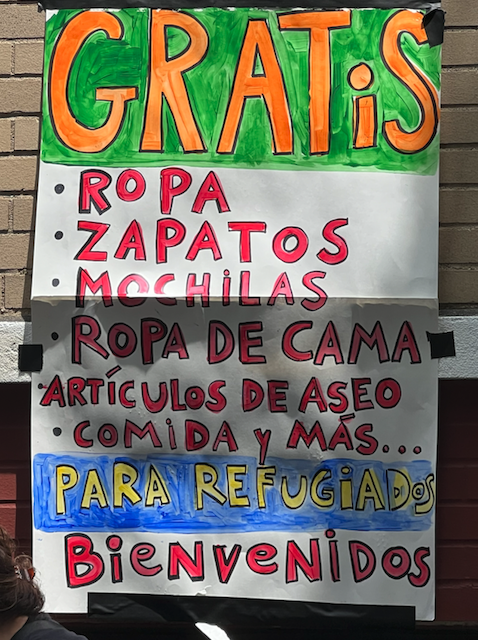 GRATiS
• ROPA
• ZAPATOS
• MOCHiLAS
• ROPA DE CAMA
• ARTÍCULOS DE ASEO
• COMiDA y MÁS...
PARA REFUGiADOS
BiENVENiDOS